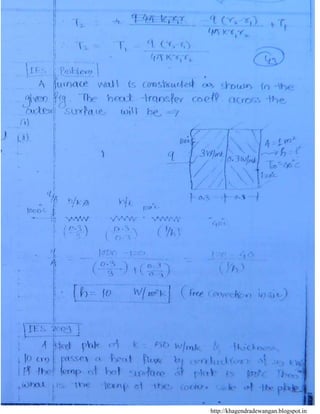 T₂ = + q 4πk r₁r₂ / q (r₂-r₁) / 4πk r₁r₂ + T₁
T₂ = T₁ - q (r₂-r₁) / 4πk r₁r₂
43
IES Problem
A furnace wall is constructed as shown in the
given fig. The heat transfer coeff across the
outer surface will be ⇒
q
3W/mk
0.3W/mk
A = 1m²
0.3
0.3
1000°c
120°c
40°c
(0.3/3) (0.3/0.3) (1/h)
q/A = 1000 - 120 / (0.3/3) + (0.3/0.3) = 120 - 40 / (1/h)
h = 10 W/m²k (free convection in air)
IES 2009
A steel plate of k = 50 W/mk & thickness
10 cm passes a heat flux by conduction of
If the temp of hot surface of plate is 100°c Then
what is the temp of the cooler side of the plate
http://khagendradewangan.blogspot.in